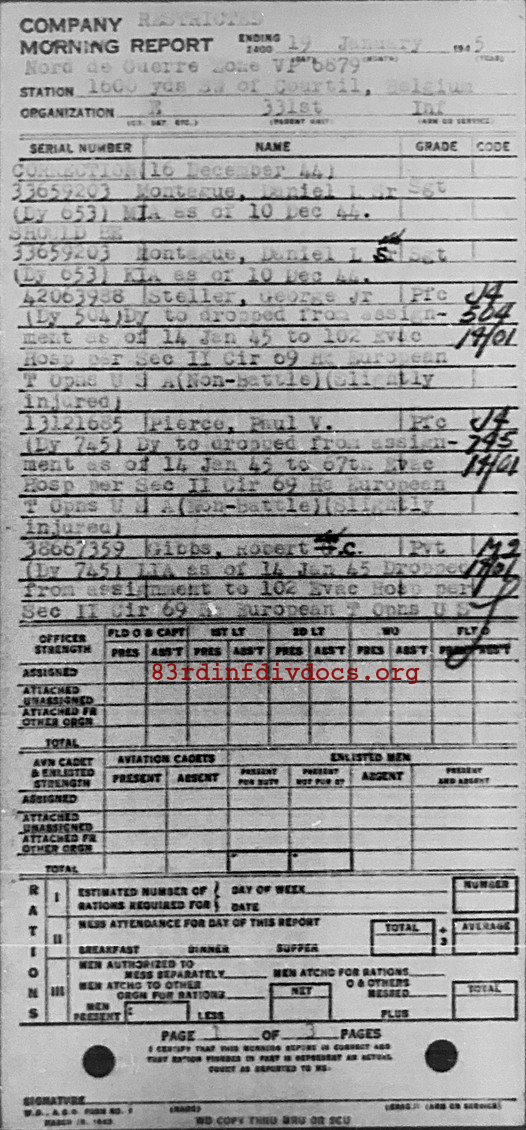 COMPANY RESTRICTED
MORNING REPORT ENDING 2400 19 January 1945
(DAY) (MONTH) (YEAR)
Nord de Guerre Zone VP 6879
STATION 1600 yds SW of Courtil, Belgium
ORGANIZATION E 331st Inf
(CO. DET. ETC.) (PARENT UNIT) (ARM OR SERVICE)
SERIAL NUMBER NAME GRADE CODE
CORRECTION (16 December 44)
33659203 Montague, Daniel L Sr Sgt
(Dy 653) MIA as of 10 Dec 44.
SHOULD BE
33659203 Montague, Daniel L Sr Sgt
(Dy 653) KIA as of 10 Dec 44.
42063988 Steller, George Jr Pfc J4
(Dy 504)Dy to dropped from assign- 504
ment as of 14 Jan 45 to 102 Evac 14/01
Hosp per Sec II Cir 69 Hq European
T Opns U S A(Non-Battle)(Slightly
injured)
13121685 Pierce, Paul V. Pfc J4
(Dy 745) Dy to dropped from assign- 745
ment as of 14 Jan 45 to 67th Evac 14/01
Hosp per Sec II Cir 69 Hq European
T Opns U S A(Non-Battle)(Slightly
injured)
38667359 Gibbs, Robert C. Pvt
(Dy 745) LIA as of 14 Jan 45 Dropped
from assignment to 102 Evac Hosp per
Sec II Cir 69 Hq European T Opns U S
OFFICER STRENGTH FLD O & CAPT 1ST LT 2D LT WO FLT O
PRES ABS'T PRES ABS'T PRES ABS'T PRES ABS'T PRES ABS'T
ASSIGNED
83rdinfdivdocs.org
ATTACHED UNASSIGNED
ATTACHED FR OTHER ORGN
TOTAL
AVN CADET & ENLISTED STRENGTH AVIATION CADETS ENLISTED MEN
PRESENT ABSENT PRESENT FOR DUTY PRESENT NOT FOR DY ABSENT PRESENT AND ABSENT
ASSIGNED
ATTACHED UNASSIGNED
ATTACHED FR OTHER ORGN
TOTAL
RATIONS
I ESTIMATED NUMBER OF DAY OF WEEK NUMBER
RATIONS REQUIRED FOR DATE
II MESS ATTENDANCE FOR DAY OF THIS REPORT TOTAL ÷ 3 AVERAGE
BREAKFAST DINNER SUPPER
III MEN AUTHORIZED TO MESS SEPARATELY MEN ATCHD FOR RATIONS
MEN ATCHD TO OTHER ORGN FOR RATIONS NET O & OTHERS MESSED TOTAL
MEN PRESENT LESS PLUS
PAGE 1 OF 3 PAGES
I CERTIFY THAT THIS MORNING REPORT IS CORRECT AND
SIGNATURE
(NAME) (GRADE) (ARM OR SERVICE)
W.D., A.G.O. FORM NO. 1
WD COPY THRU MRU OR SCU